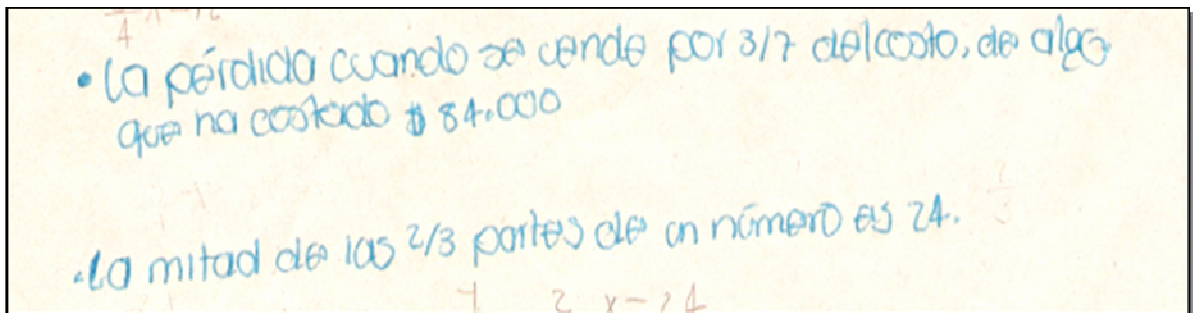 • La pérdida cuando se vende por 3/7 del costo, de algo
que ha costado $ 84.000
• La mitad de las 2/3 partes de un número es 24.